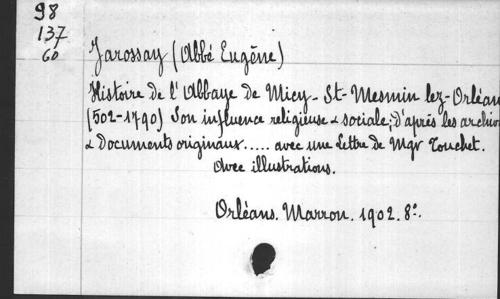 98
137
60
Jarossay (Abbé Eugène)
Histoire de l'Abbaye de Micy-St-Mesmin lez-Orléan
(502-1790) Son influence religieuse & sociale; d'après les archiv
& documents originaux..... avec une lettre de Mgr Touchet.
Avec illustrations.
Orléans. Marron. 1902. 8º.